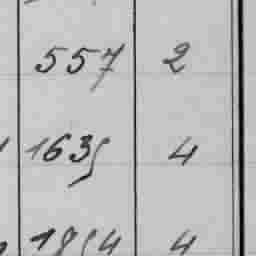 557 2
1635 4
1854 4